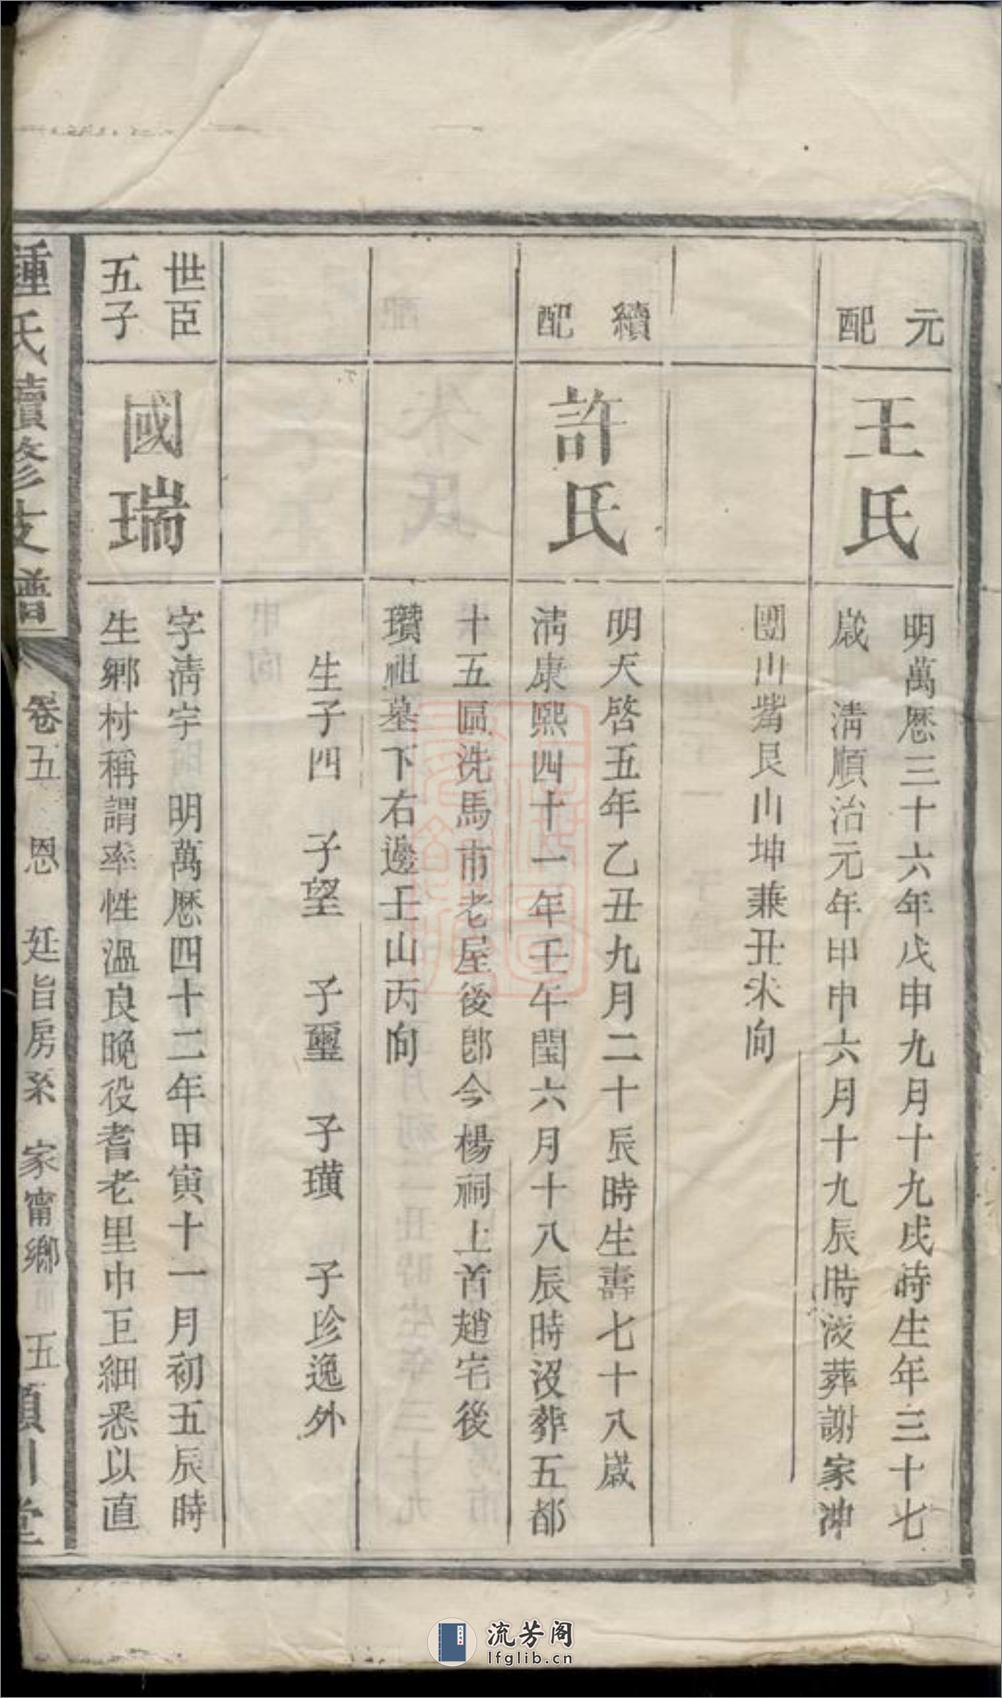 元配
王氏
明萬厯三十六年戊申九月十九戌時生年三十七
歲　淸順治元年甲申六月十九辰時沒葬謝家冲
團山嘴艮山坤兼丑未向
續配
許氏
明天啓五年乙丑九月二十辰時生壽七十八歲
淸康熙四十一年壬午閏六月十八辰時沒葬五都
十五區洗馬市老屋後卽今楊祠上首趙宅後
瓚祖墓下右邊壬山丙向
生子四　子望　子璽　子璜　子珍逸外
世臣五子
國瑞
字淸宇　明萬厯四十二年甲寅十一月初五辰時
生鄉村稱謂率性溫良晚役耆老里中巨細悉以直
鍾氏續修支譜　卷五　恩　延旨房系　家甯鄉　五　潁川堂
流芳阁
lfglib.cn